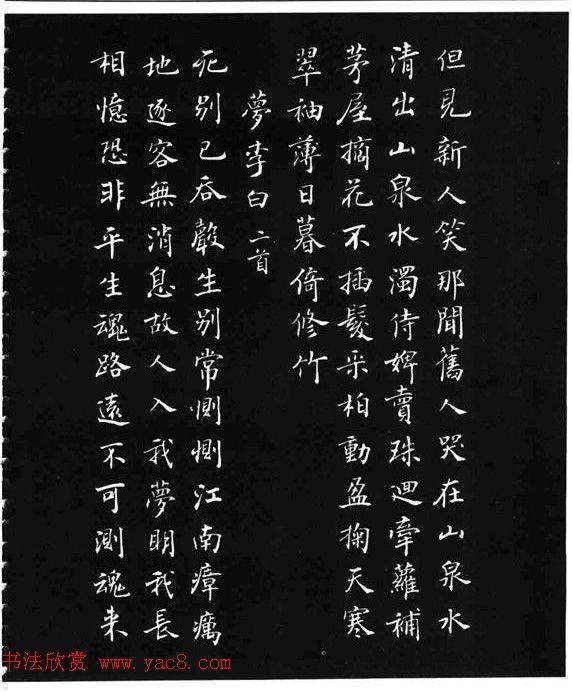 但見新人笑那聞舊人哭在山泉水
清出山泉水濁侍婢賣珠迴牽蘿補
茅屋摘花不插髮采柏動盈掬天寒
翠袖薄日暮倚修竹
夢李白二首
死別已吞聲生別常惻惻江南瘴癘
地逐客無消息故人入我夢明我長
相憶恐非平生魂路遠不可測魂来
书法欣赏 www.yac8.com